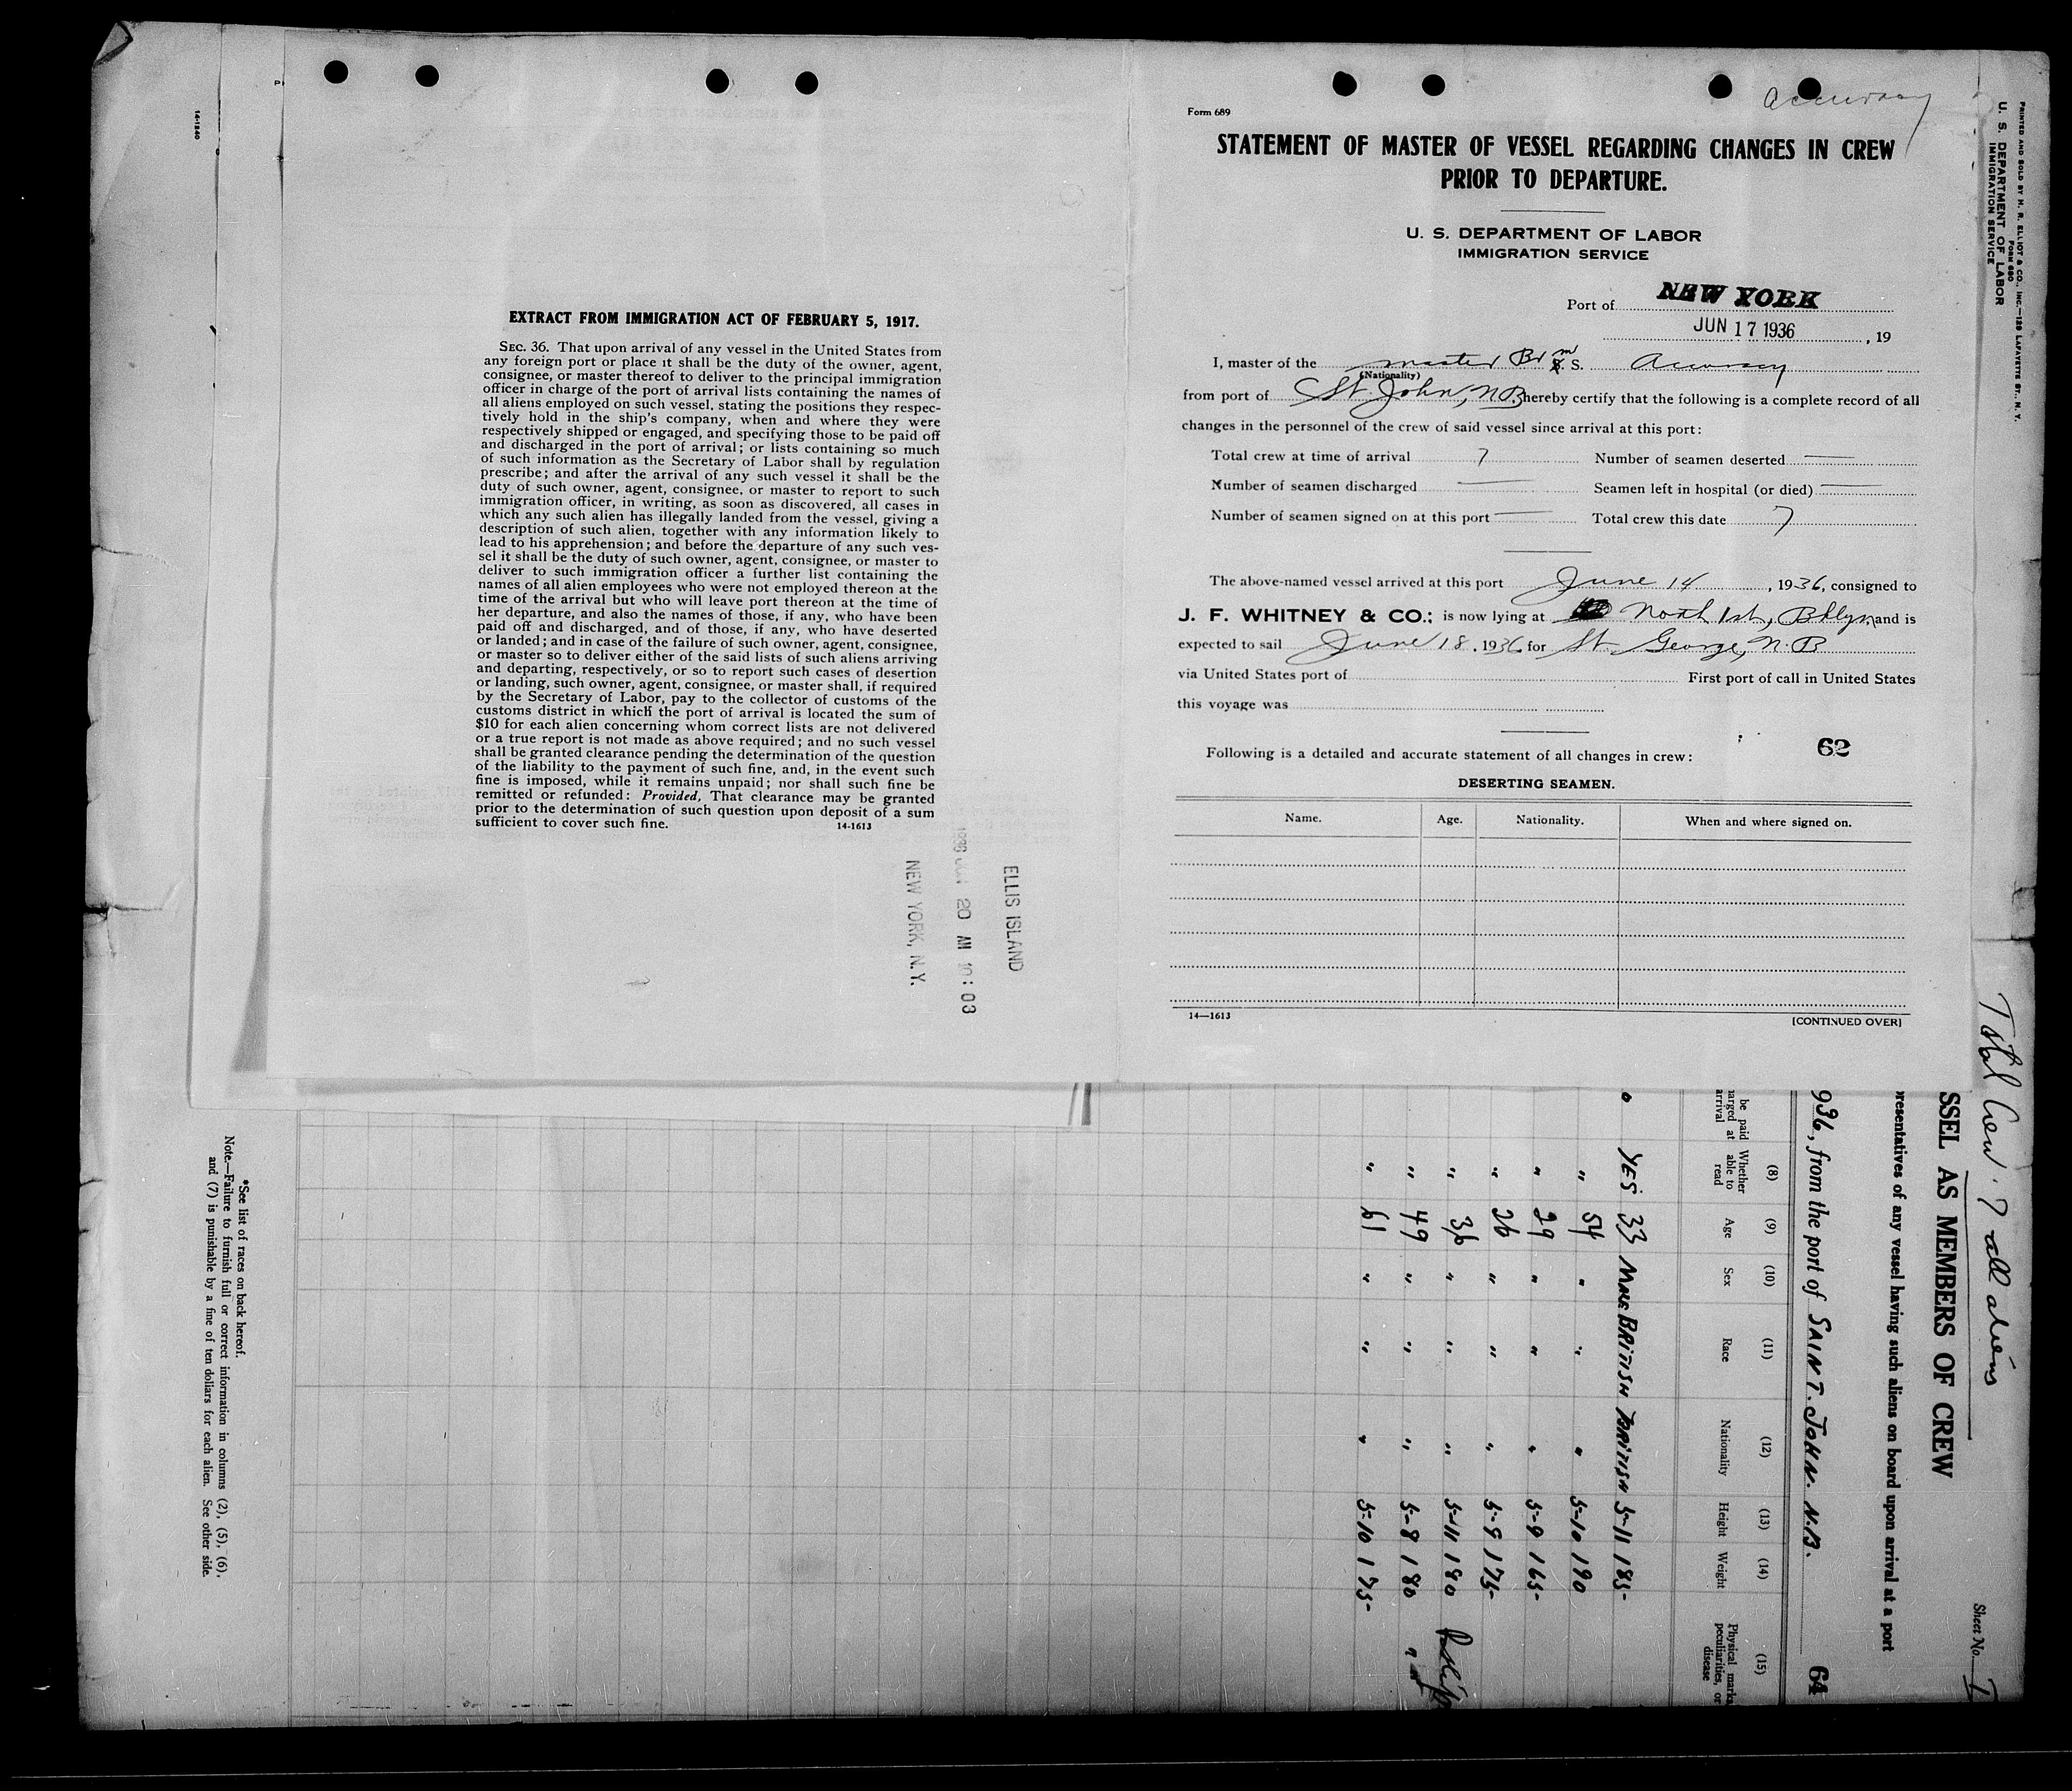 14-1240
EXTRACT FROM IMMIGRATION ACT OF FEBRUARY 5, 1917.
SEC. 36. That upon arrival of any vessel in the United States from
any foreign port or place it shall be the duty of the owner, agent,
consignee, or master thereof to deliver to the principal immigration
officer in charge of the port of arrival lists containing the names of
all aliens employed on such vessel, stating the positions they respec-
tively hold in the ship's company, when and where they were
respectively shipped or engaged, and specifying those to be paid off
and discharged in the port of arrival; or lists containing so much
of such information as the Secretary of Labor shall by regulation
prescribe; and after the arrival of any such vessel it shall be the
duty of such owner, agent, consignee, or master to report to such
immigration officer, in writing, as soon as discovered, all cases in
which any such alien has illegally landed from the vessel, giving a
description of such alien, together with any information likely to
lead to his apprehension; and before the departure of any such ves-
sel it shall be the duty of such owner, agent, consignee, or master to
deliver to such immigration officer a further list containing the
names of all alien employees who were not employed thereon at the
time of the arrival but who will leave port thereon at the time of
her departure, and also the names of those, if any, who have been
paid off and discharged, and of those, if any, who have deserted
or landed; and in case of the failure of such owner, agent, consignee,
or master so to deliver either of the said lists of such aliens arriving
and departing, respectively, or so to report such cases of desertion
or landing, such owner, agent, consignee, or master shall, if required
by the Secretary of Labor, pay to the collector of customs of the
customs district in which the port of arrival is located the sum of
$10 for each alien concerning whom correct lists are not delivered
or a true report is not made as above required; and no such vessel
shall be granted clearance pending the determination of the question
of the liability to the payment of such fine, and, in the event such
fine is imposed, while it remains unpaid; nor shall such fine be
remitted or refunded: Provided, That clearance may be granted
prior to the determination of such question upon deposit of a sum
sufficient to cover such fine. 14-1613
ELLIS ISLAND
20 AM 10:03
NEW YORK, N.Y.
Form 689
STATEMENT OF MASTER OF VESSEL REGARDING CHANGES IN CREW
PRIOR TO DEPARTURE.
U. S. DEPARTMENT OF LABOR
IMMIGRATION SERVICE
Port of NEW YORK
JUN 17 1936, 19
I, master of the master Br m S.
(Nationality)
from port of St. John, N.B. hereby certify that the following is a complete record of all
changes in the personnel of the crew of said vessel since arrival at this port:
Total crew at time of arrival 7 Number of seamen deserted —
Number of seamen discharged — Seamen left in hospital (or died) —
Number of seamen signed on at this port — Total crew this date 7
The above-named vessel arrived at this port June 14, 1936, consigned to
J. F. WHITNEY & CO.; is now lying at North 1st, Bklyn and is
expected to sail June 18, 1936 for St. George, N.B
via United States port of First port of call in United States
this voyage was
62
Following is a detailed and accurate statement of all changes in crew:
DESERTING SEAMEN.
Name. Age. Nationality. When and where signed on.
14—1613 [CONTINUED OVER]
PRINTED AND SOLD BY H. R. ELLIOT & CO., INC.—129 LAFAYETTE ST., N. Y.
FORM 680
U. S. DEPARTMENT OF LABOR
IMMIGRATION SERVICE
Total Crew 7 all aliens
Sheet No. 1
SSEL AS MEMBERS OF CREW
resentatives of any vessel having such aliens on board upon arrival at a port
936, from the port of SAINT. JOHN. N.B.
64
(8) (9) (10) (11) (12) (13) (14) (15)
be paid arged at arrival Whether able to read Age Sex Race Nationality Height Weight Physical marks, peculiarities, or disease
YES 33 MALE BRITISH BRITISH 5-11 185-
" 54 " " " 5-10 190
" 29 " " " 5-9 165-
" 26 " " " 5-9 175-
" 36 " " " 5-11 180
" 49 " " " 5-8 180 "
" 61 " " " 5-10 175-
*See list of races on back hereof.
Note.—Failure to furnish full or correct information in columns (2), (5), (6),
and (7) is punishable by a fine of ten dollars for each alien. See other side.